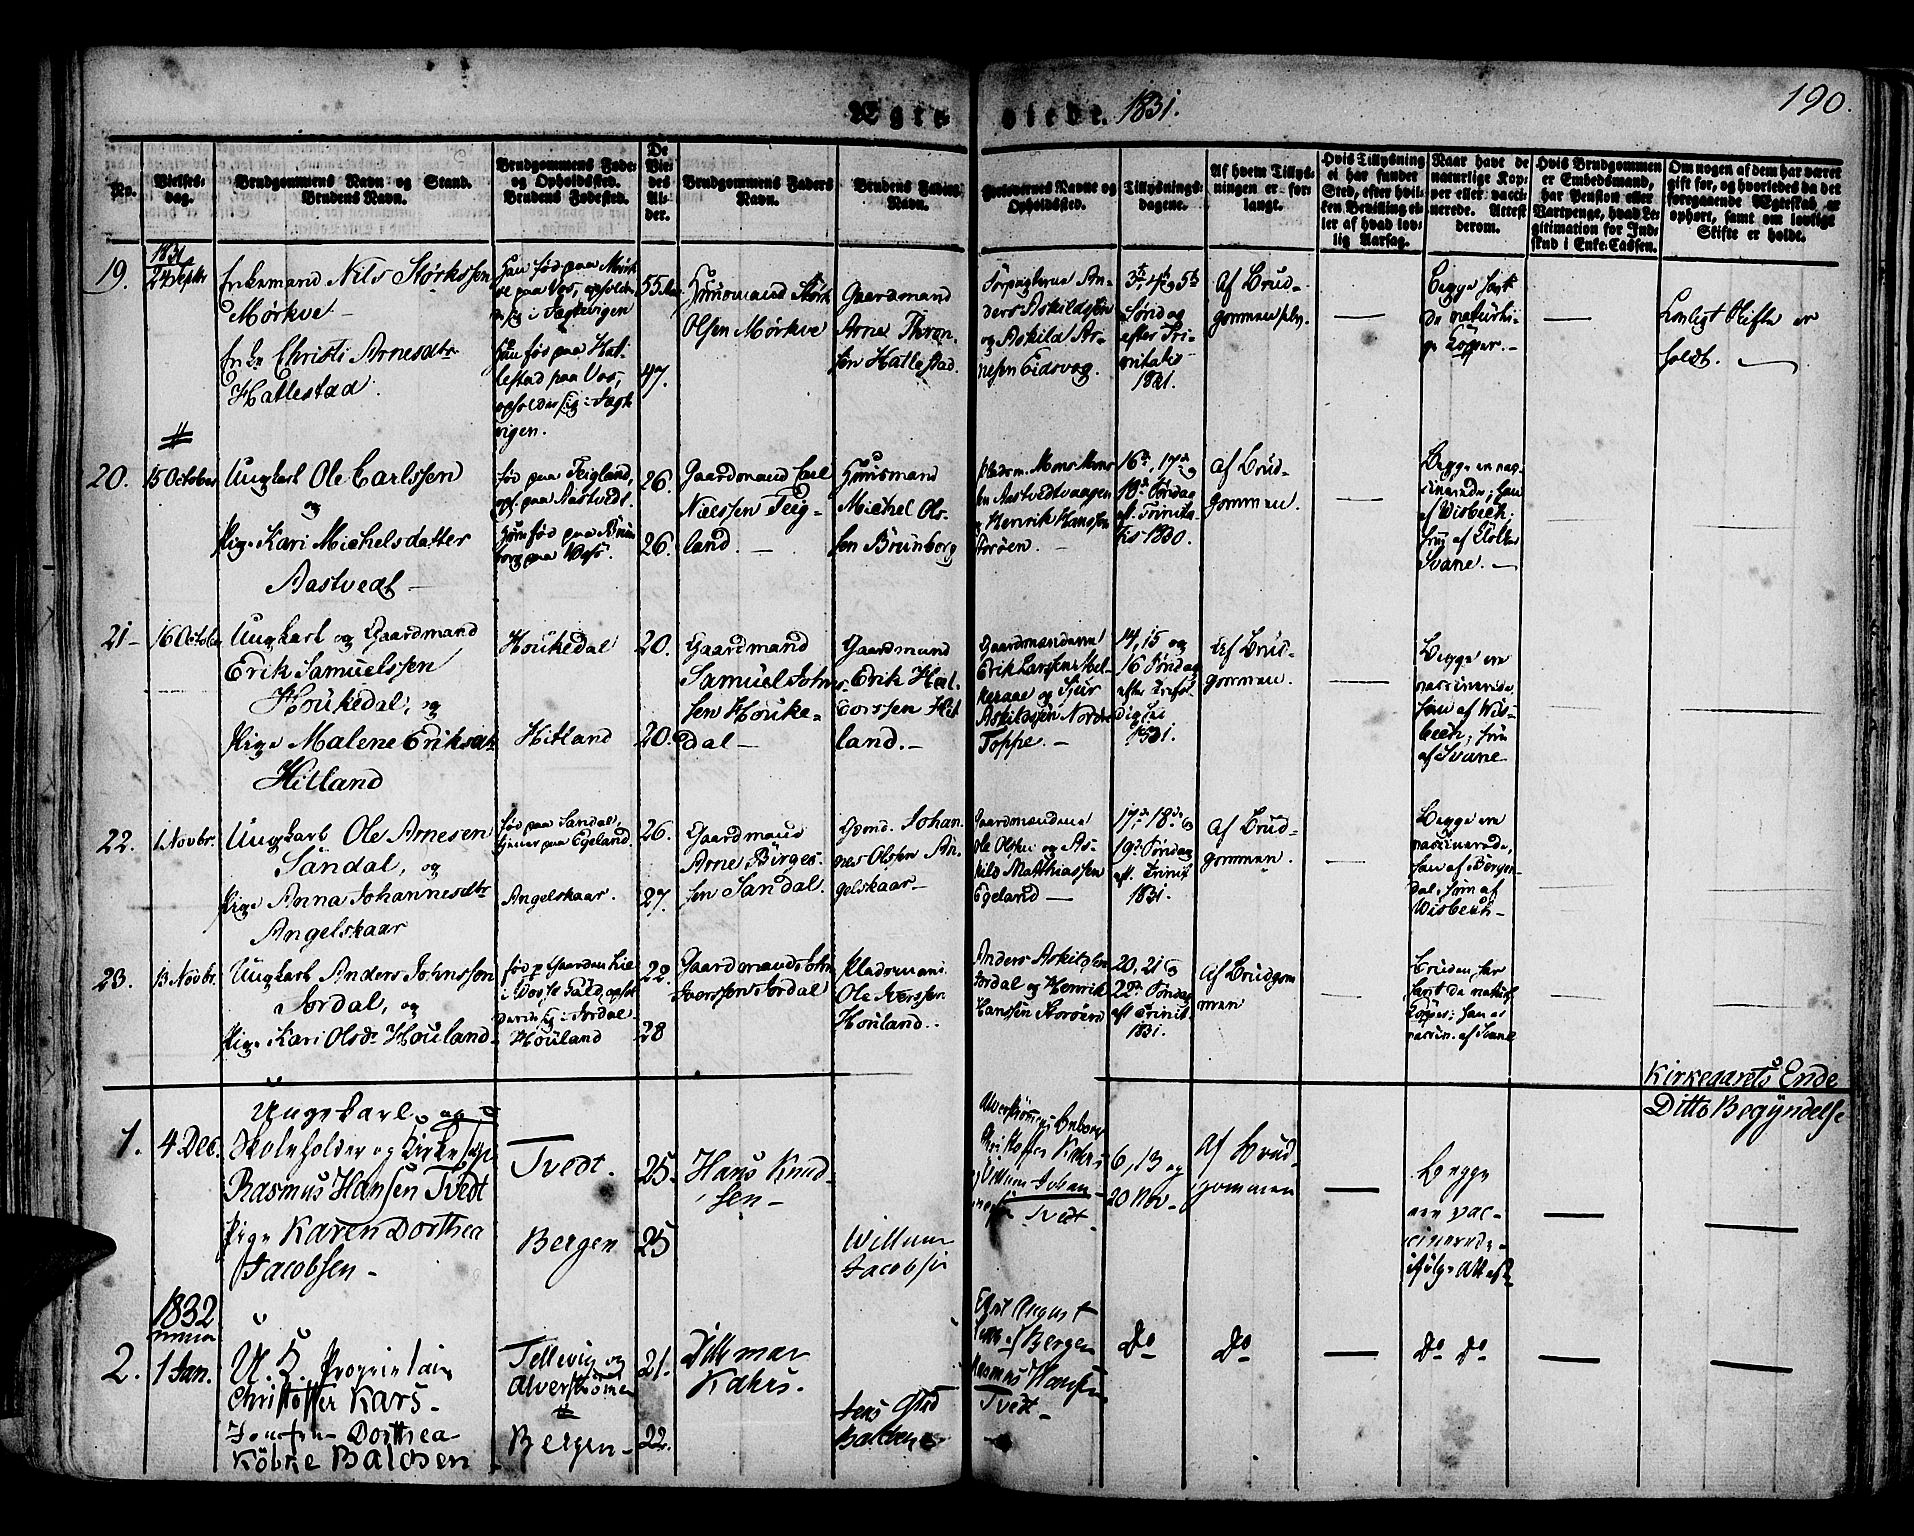 Ægte viede. 1831.
190.
No.
Vielses-dag.
Brudgommens Navn og Stand.
Brudens Navn.
Brudgommens Føde- og Opholdssted.
Brudens Fødested.
De Viedes Alder.
Brudgommens Faders Navn.
Brudens Faders Navn.
Forlovernes Navne og Opholdssted.
Tillysnings-dagene.
Af hvem Tillysningen er forlangt.
Hvis Tillysning ei har fundet Sted, efter hvilken Bevilling eller af hvad lovlig Aarsag.
Naar havt de naturlige Kopper eller vaccinerede. Attest derom.
Hvis Brudgommen er Embedsmand, har Pension eller Vartpenge, hvad Legitimation for Indskud i Enke-Cassen.
Om nogen af dem har været gift før, og hvorledes da det foregaaende Ægteskab er ophørt, samt om lovligt Skifte er holdt.
19.
1831
24 Septbr
Enkemand Nils Størkssen
Mørkve
Enke Christi Arnesdtr
Hatlestad
Han fød paa Mørk-
ve paa Vos, opholder
sig i Sægkvigen
Hun fød paa Hat-
lestad paa Vos,
opholder sig i Sægk-
vigen.
55
47.
Huusmand Størk
Olsen Mørkve
Gaardmand
Arne Thron-
sen Hatlestad.
Sørpigterne An-
ders Askildsen
og Askild Ar-
nesen Eidsvog.
3die 4de og 5te
Søndag
efter Tri-
nitatis
1831.
Af Brud-
gommen selv.
Begge havt
de naturli-
ge Kopper.
Lovligt Skifte er
holdt.
20.
15 October
Ungkarl Ole Carlssen
og
Pige Kari Michelsdatter
Aastvedt
fød paa Teigland,
oph. paa Aastvedt.
Hun fød paa Brün-
borg paa Vofs.
26.
26.
Gaardmand Carl
Nielssen Teig-
land.
Huusmand
Michel Ols-
sen Brünborg
Pladsm. Mons Mons-
sen Aastvedtvaagen
og Henrik Hanssen
Storøen.
16de, 17de og
18de Søndag
eft. Trinita-
tis 1830.
Af Brud-
gommen.
Begge ere vac-
cinerede; han
af Wisbech,
hun af Stolker
Svane.
21
16 October
Ungkarl og Gaardmand
Erik Samuelssen
Houkedal, og
Pige Malene Eriksdtr
Hitland
Houkedal
Hitland
20.
20.
Gaardmand
Samuel Johns-
sen Houke-
dal
Gaardmand
Erik Hal-
vorssen Hit
land.
Gaardmændene
Erik Larssen
og Sjur
Askildssen Nordre
Toppe.
14, 15 og
16 Søndag
efter Trefol-
dighe
1831.
Af Brud-
gommen.
Begge ere
vaccinerede,
han af Wis-
bech, hun
af Svane
22.
1 Novbr.
Ungkarl Ole Arnesen
Sandal, og
Pige Anna Johannesdtr
Angelskaar
fød paa Sandal,
tjener paa Egeland.
Angelskaar.
26.
27.
Gaardmand
Arne Börges-
sen Sandal.
Gdmd. Johan-
nes Olssen An-
gelskaar
Gaardmændene
Ole Olsen og As-
kild Matthiassen
Egeland
17de 18de og
19de Søndag
eft. Trinit
1831.
Af Brud-
gommen.
Begge ere
vaccinerede,
han af Bergen-
dal, hun af
Wisbech
23.
13 Novbr.
Ungkarl Anders Johnssøn
Jordal, og
Pige Kari Olsdr Houland
fød p Gaarden Lie
i Jordal
Houland
22.
28
Gaardmand John
Iverssen Jordal
Pladsmand
Ole Iverssen
Houland.
Anders Askildsen
Jordal og Henrik
Hanssen Storøen
20, 21 og
22de Søndag
eft Trinit
1831.
Af Brudgom
men
Bruden har
havt de naturl.
Kopper; han er
vaccin. af Svane
Kirkeaarets Ende
Ditto Begyndelse
1.
4 Dec.
Ungekarl og
Skoleholder og Kirkesanger
Rasmus Hansen Tvedt
Pige Karen Dorthea
Jacobsen
Tvedt.
Bergen
25
25
Hans Knud-
sen
Willum
Jacobsen
Alverstrømmens Beboer
Christoffer Kahrs
og Willum Johan-
Tvedt
6, 13 og
20 Nov.
Af Brud-
gommen
Begge
ere vac-
cinerede
ifølge Attest
1832
2.
1 Jan.
U. K. Proprietair
Christoffer Kars
Jomfru Dorthea
Köbke Baldsen
Tellevig og
Alverstrømen
Bergen
21.
22.
Ditmar
Kahrs.
Jens
Ernst August
Bergen
Rasmus Hansen
Tvedt
Do
Do
Do Do